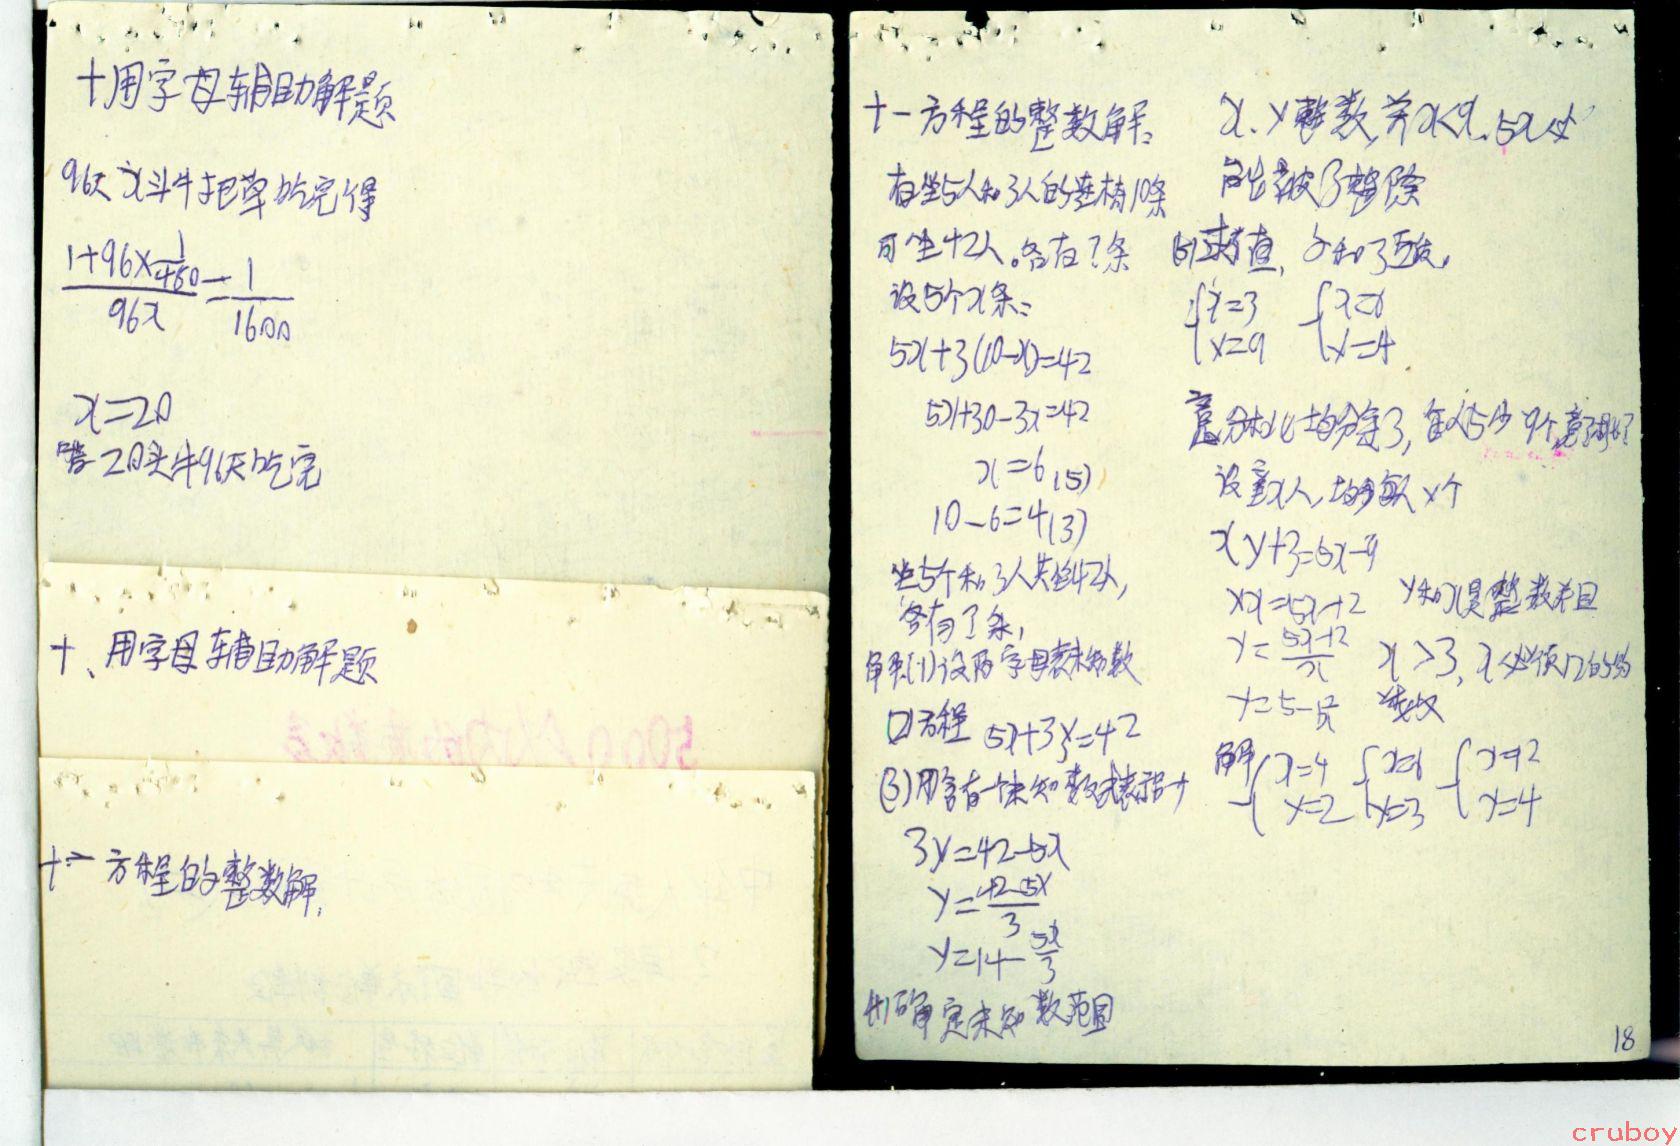 十用字母辅助解题
96天x头牛把草吃完得
1+96×1/480 / 96x = 1/1600
x=20
答20头牛96天吃完
十、用字母辅助解题
十一方程的整数解.
十一方程的整数解:
有坐5人和3人的连椅10条
可坐42人。各有?条
设5个x条:
5x+3(10-x)=42
5x+30-3x=42
x=6(5)
10-6=4(3)
坐5个和3人共坐42人,
各有?条,
解:(1)设两字母表未知数
(2)方程 5x+3y=42
(3)用含有一个未知数式表示另一个
3y=42-5x
y=42-5x/3
y=14-5x/3
(4)确定未知数范围
x、y整数,并x<9.
被3整除
5和3互质,
{x=3 y=9 {x=6 y=4
均分余3,每人5少9个,
设童x人,均分每人y个
xy+3=5x-9
yx=5x-12 y和x是整数并且
y=5x-12/x x>3,x必须12的约
y=5-12/x 数
解 {x=4 y=2 {x=6 y=3 {x=12 y=4
18
cruboy